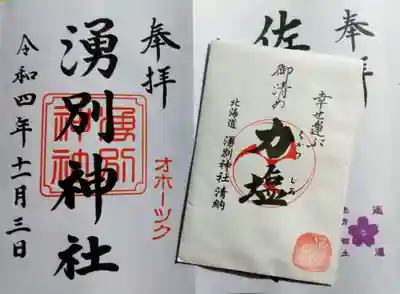 奉拝
湧別神社
湧別神社
オホーツク
令和四年十一月三日
奉拝
佐
幸せ運ぶ
御清め
力塩
北海道 湧別神社 清納